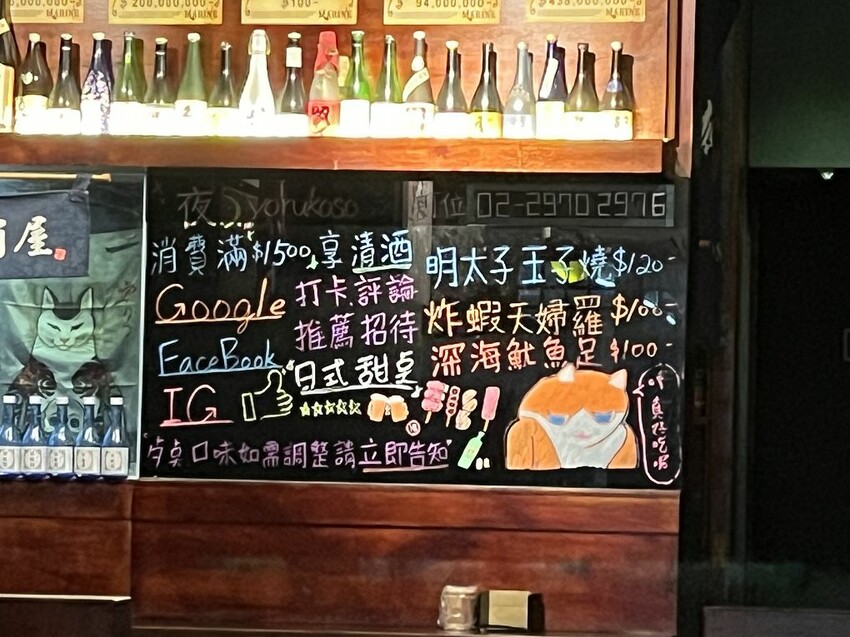 $200,000,000-
MARINE
$100-
MARINE
94,000,000-
MARINE
MARINE
屋
夜 yorukoso
位 02-2970 2976
消費滿$1500,享清酒
Google 打卡.評論
推薦 招待
FaceBook
IG
日式甜桌
桌口味如需調整請立即告知
明太子玉子燒$120-
炸蝦天婦羅$100-
深海魷魚足$100-